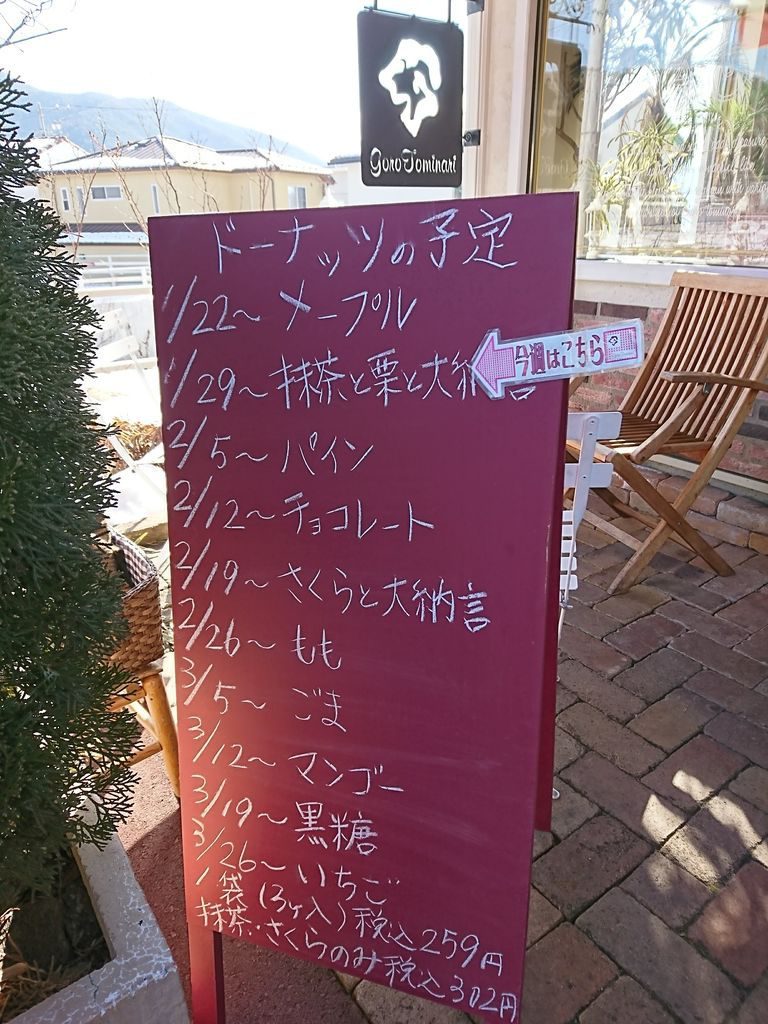 Goro Tominari
ドーナッツの予定
1/22〜メープル
1/29〜抹茶と栗と大納言
今週はこちら
2/5〜パイン
2/12〜チョコレート
2/19〜さくらと大納言
2/26〜もも
3/5〜ごま
3/12〜マンゴー
3/19〜黒糖
3/26〜いちご
1袋(3ヶ入)税込259円
抹茶・さくらのみ税込302円